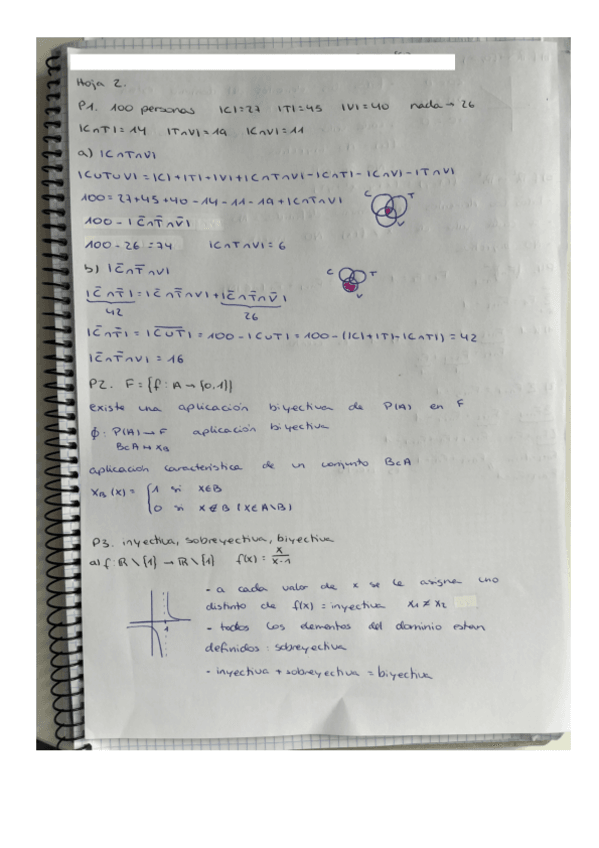 Hoja 2.
P1. 100 personas |C|=27 |T|=45 |V|=40 nada → 26
|C∩T|=14 |T∩V|=19 |C∩V|=11
a) |C∩T∩V|
|C∪T∪V|=|C|+|T|+|V|+|C∩T∩V|-|C∩T|-|C∩V|-|T∩V|
100=27+45+40-14-11-19+|C∩T∩V| C T V
100-|C̄∩T̄∩V̄|
100-26=74 |C∩T∩V|=6
b) |C̄∩T̄∩V| C T V
|C̄∩T̄|=|C̄∩T̄∩V|+|C̄∩T̄∩V̄|
42 26
|C̄∩T̄|=|C̅∪̅T̅|=100-|C∪T|=100-(|C|+|T|-|C∩T|)=42
|C̄∩T̄∩V|=16
P2. F={f:A→{0,1}}
existe una aplicación biyectiva de P(A) en F
ϕ: P(A)→F aplicación biyectiva
B⊂A ↦ X_B
aplicación característica de un conjunto B⊂A
X_B(x)= {1 si x∈B
0 si x∉B (x∈A\B)
P3. inyectiva, sobreyectiva, biyectiva
a) f:ℝ\{1}→ℝ\{1} f(x)=x/(x-1)
- a cada valor de x se le asigna uno
distinto de f(x) = inyectiva x₁≠x₂
1
- todos los elementos del dominio estan
definidos: sobreyectiva
- inyectiva + sobreyectiva = biyectiva